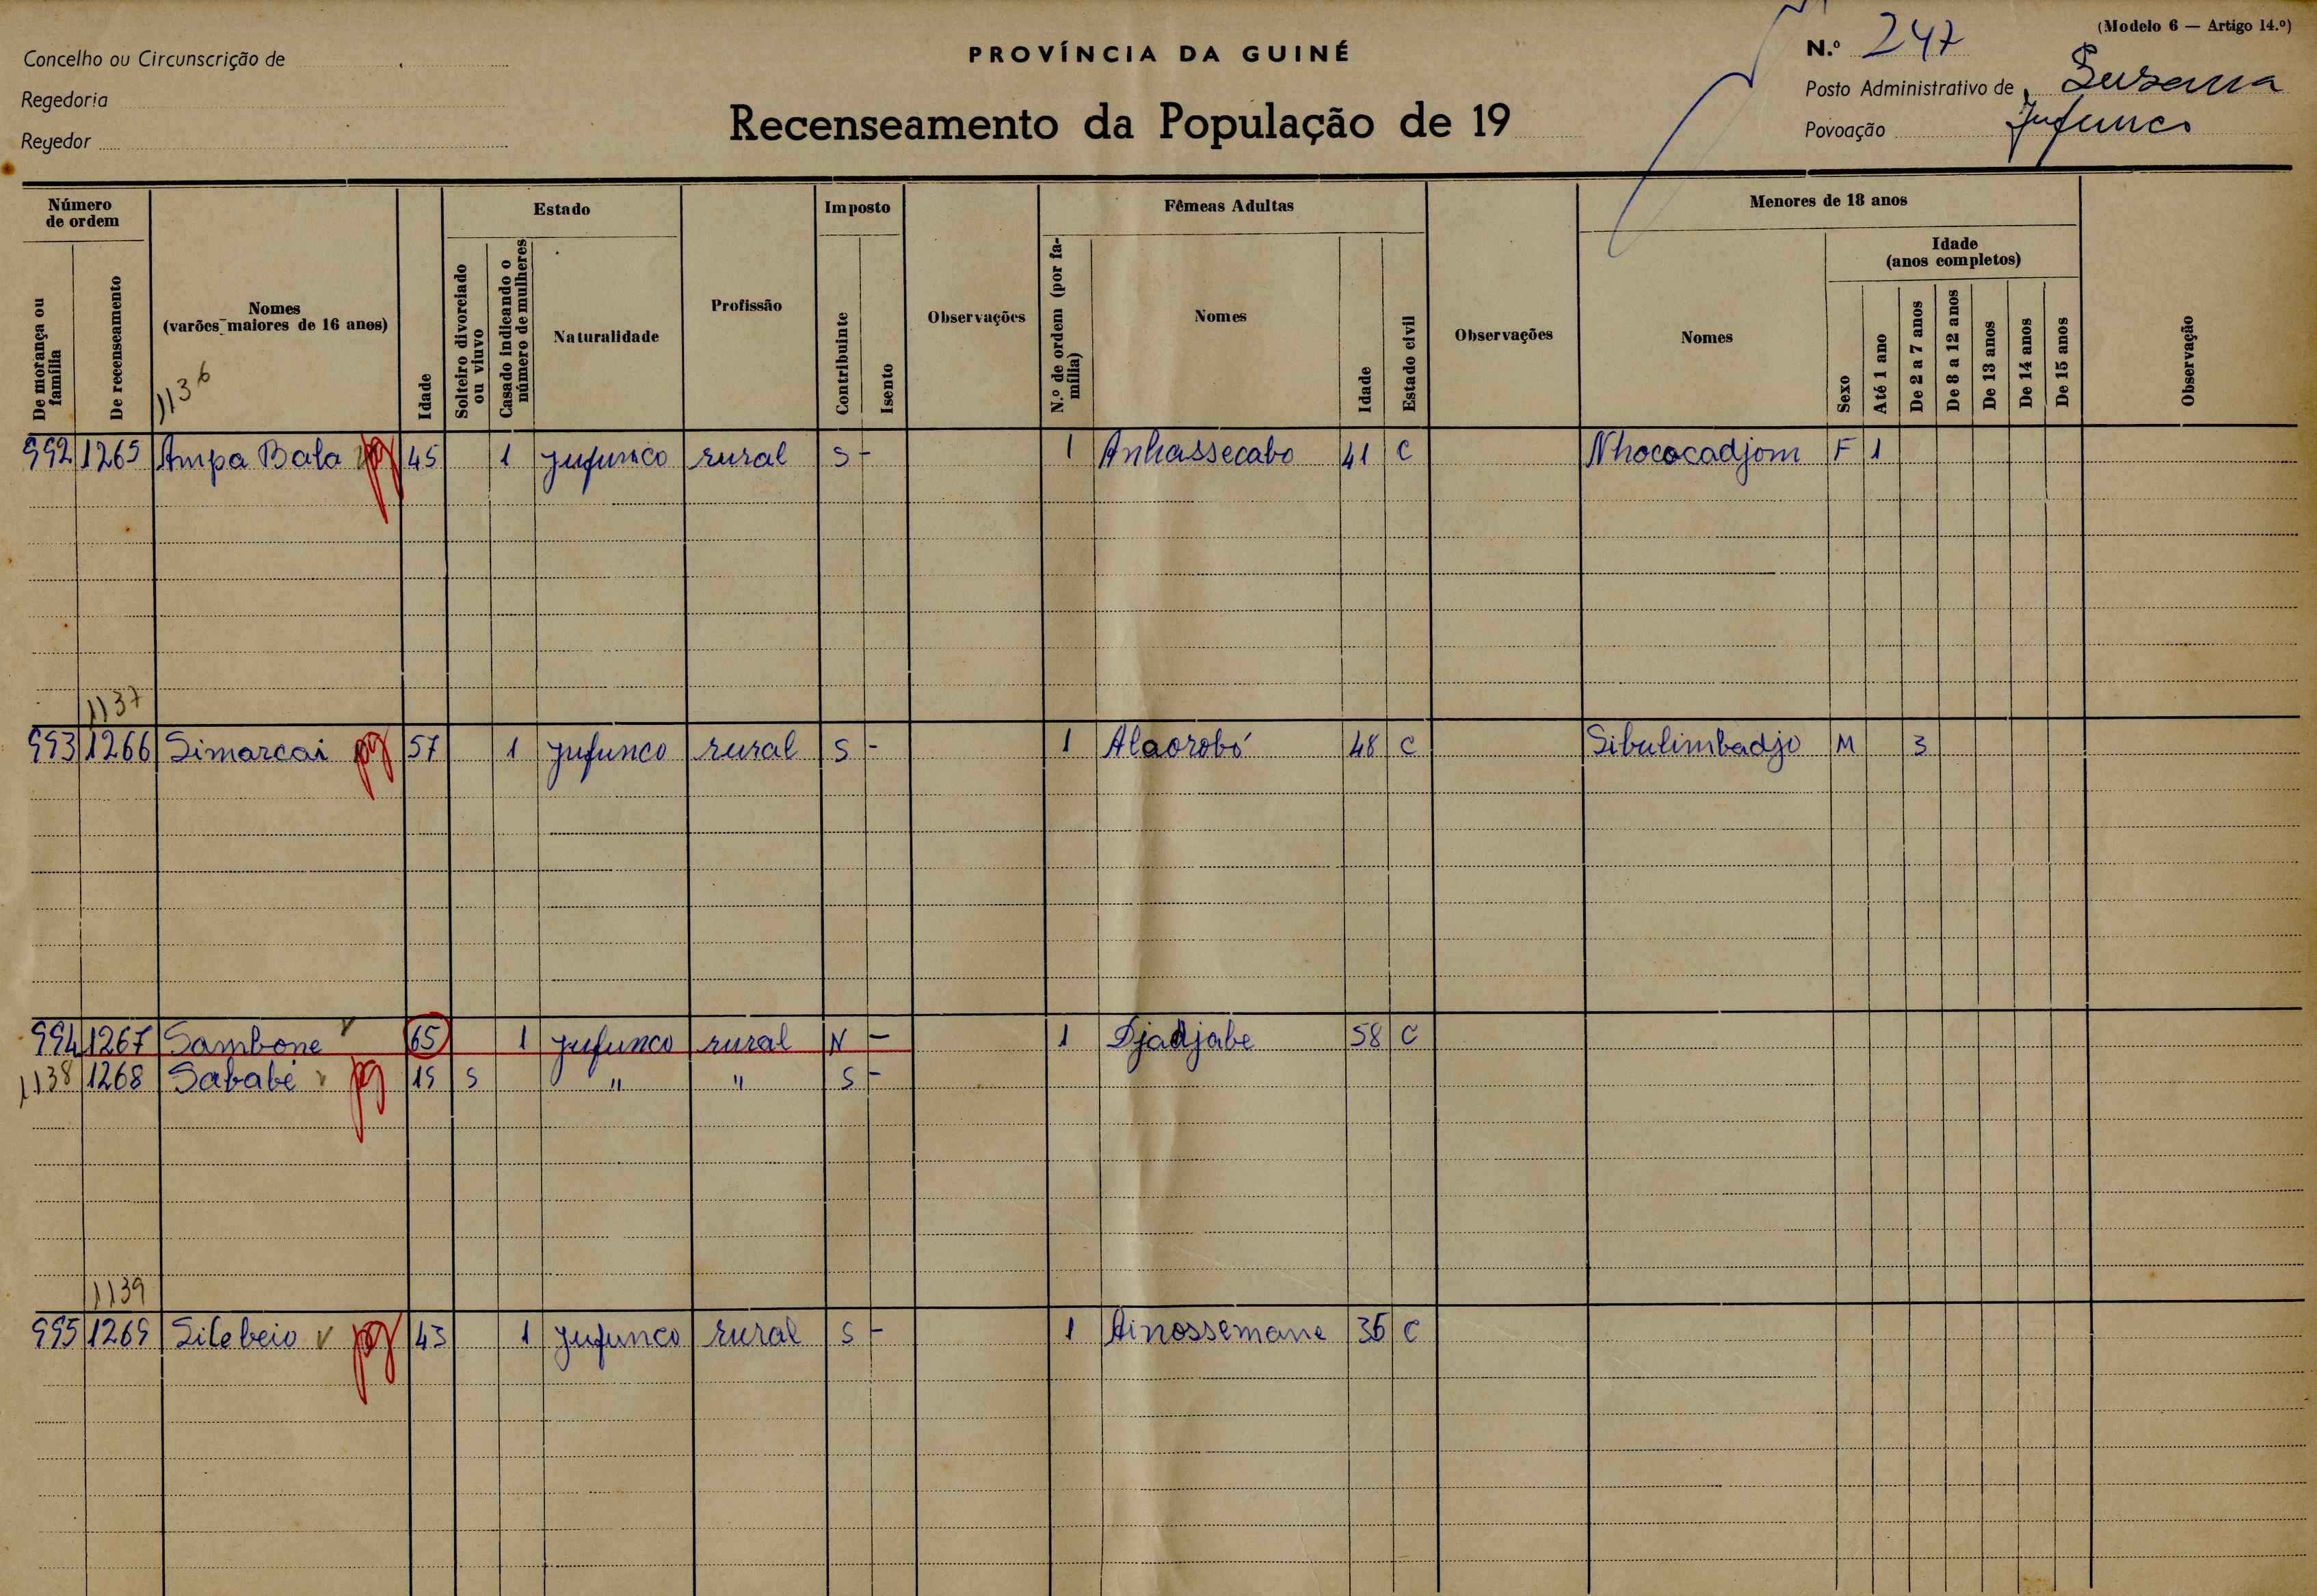 (Modelo 6 — Artigo 14.º)
Concelho ou Circunscrição de
PROVÍNCIA DA GUINÉ
N.º 247
Regedoria
Posto Administrativo de Susana
Recenseamento da População de 19
Regedor
Povoação Jufunco
Número de ordem
Estado
Imposto
Fêmeas Adultas
Menores de 18 anos
Idade (anos completos)
De morança ou família
De recenseamento
Nomes (varões maiores de 16 anos)
Idade
Solteiro divorciado ou viuvo
Casado indicando o número de mulheres
Naturalidade
Profissão
Contribuinte
Isento
Observações
N.º de ordem (por família)
Nomes
Idade
Estado civil
Observações
Nomes
Sexo
Até 1 ano
De 2 a 7 anos
De 8 a 12 anos
De 13 anos
De 14 anos
De 15 anos
Observação
1136
992 1265 Ampa Bala pg 45 1 Jufunco rural S - 1 Anhassecabo 41 C Nhococadjom F 1
1137
993 1266 Simarcai pg 57 1 Jufunco rural S - 1 Alaorobó 48 C Sibulimbadjo M 3
994 1267 Sambone v 65 1 Jufunco rural N - 1 Djadjabe 58 C
1138 1268 Sababé v pg 19 S " " S -
1139
995 1269 Silebeio v pg 43 1 Jufunco rural S - 1 Ainossemane 36 C